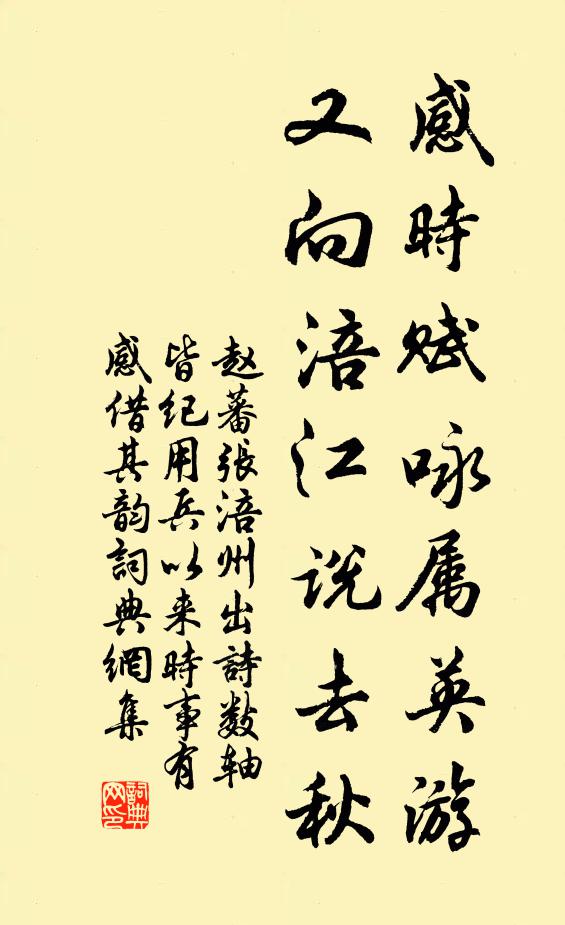 感時賦咏属英游
又向涪江説去秋
赵蕃張涪州出詩数轴
皆纪用兵以来時事有
感借其韵詞典網集
詞典
网印